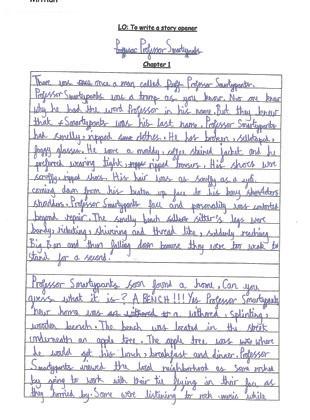 LO: To write a story opener
Professor Smartypants
Chapter 1
There was once a man called Professor Smartypants.
Professor Smartypants was a tramp as you know. No one knew
why he had the word Professor in his name. But they knew
that Smartypants was his last name. Professor Smartypants
had smelly, ripped some clothes. He has broken, sellotaped,
foggy glasses. He wore a muddy, coffee stained jacket and he
preferred wearing tight, ripped trousers. His shoes were
scruffy, ripped shoes. His hair was as smelly as a
coming down from his beaten up face to his bony shoulders
shoulders. Professor Smartypants face and personality was contorted
beyond repair. The smelly bench sitter's legs were
bandy, rickety, shivering and thread like, suddenly reaching
Big Ben and then falling down because they were too weak to
stand for a second.
Professor Smartypants soon found a home. Can you
guess what it is? A BENCH!!! Yes Professor Smartypants
new home was a withered, splinting,
wooden bench. The bench was located in the
underneath an apple tree. The apple tree was where
he would get his lunch, breakfast and dinner. Professor
Smartypants around the local neighborhood as some rushed
by going to work with their tie flying in their face as
they hurried by. Some were listening to rock music while